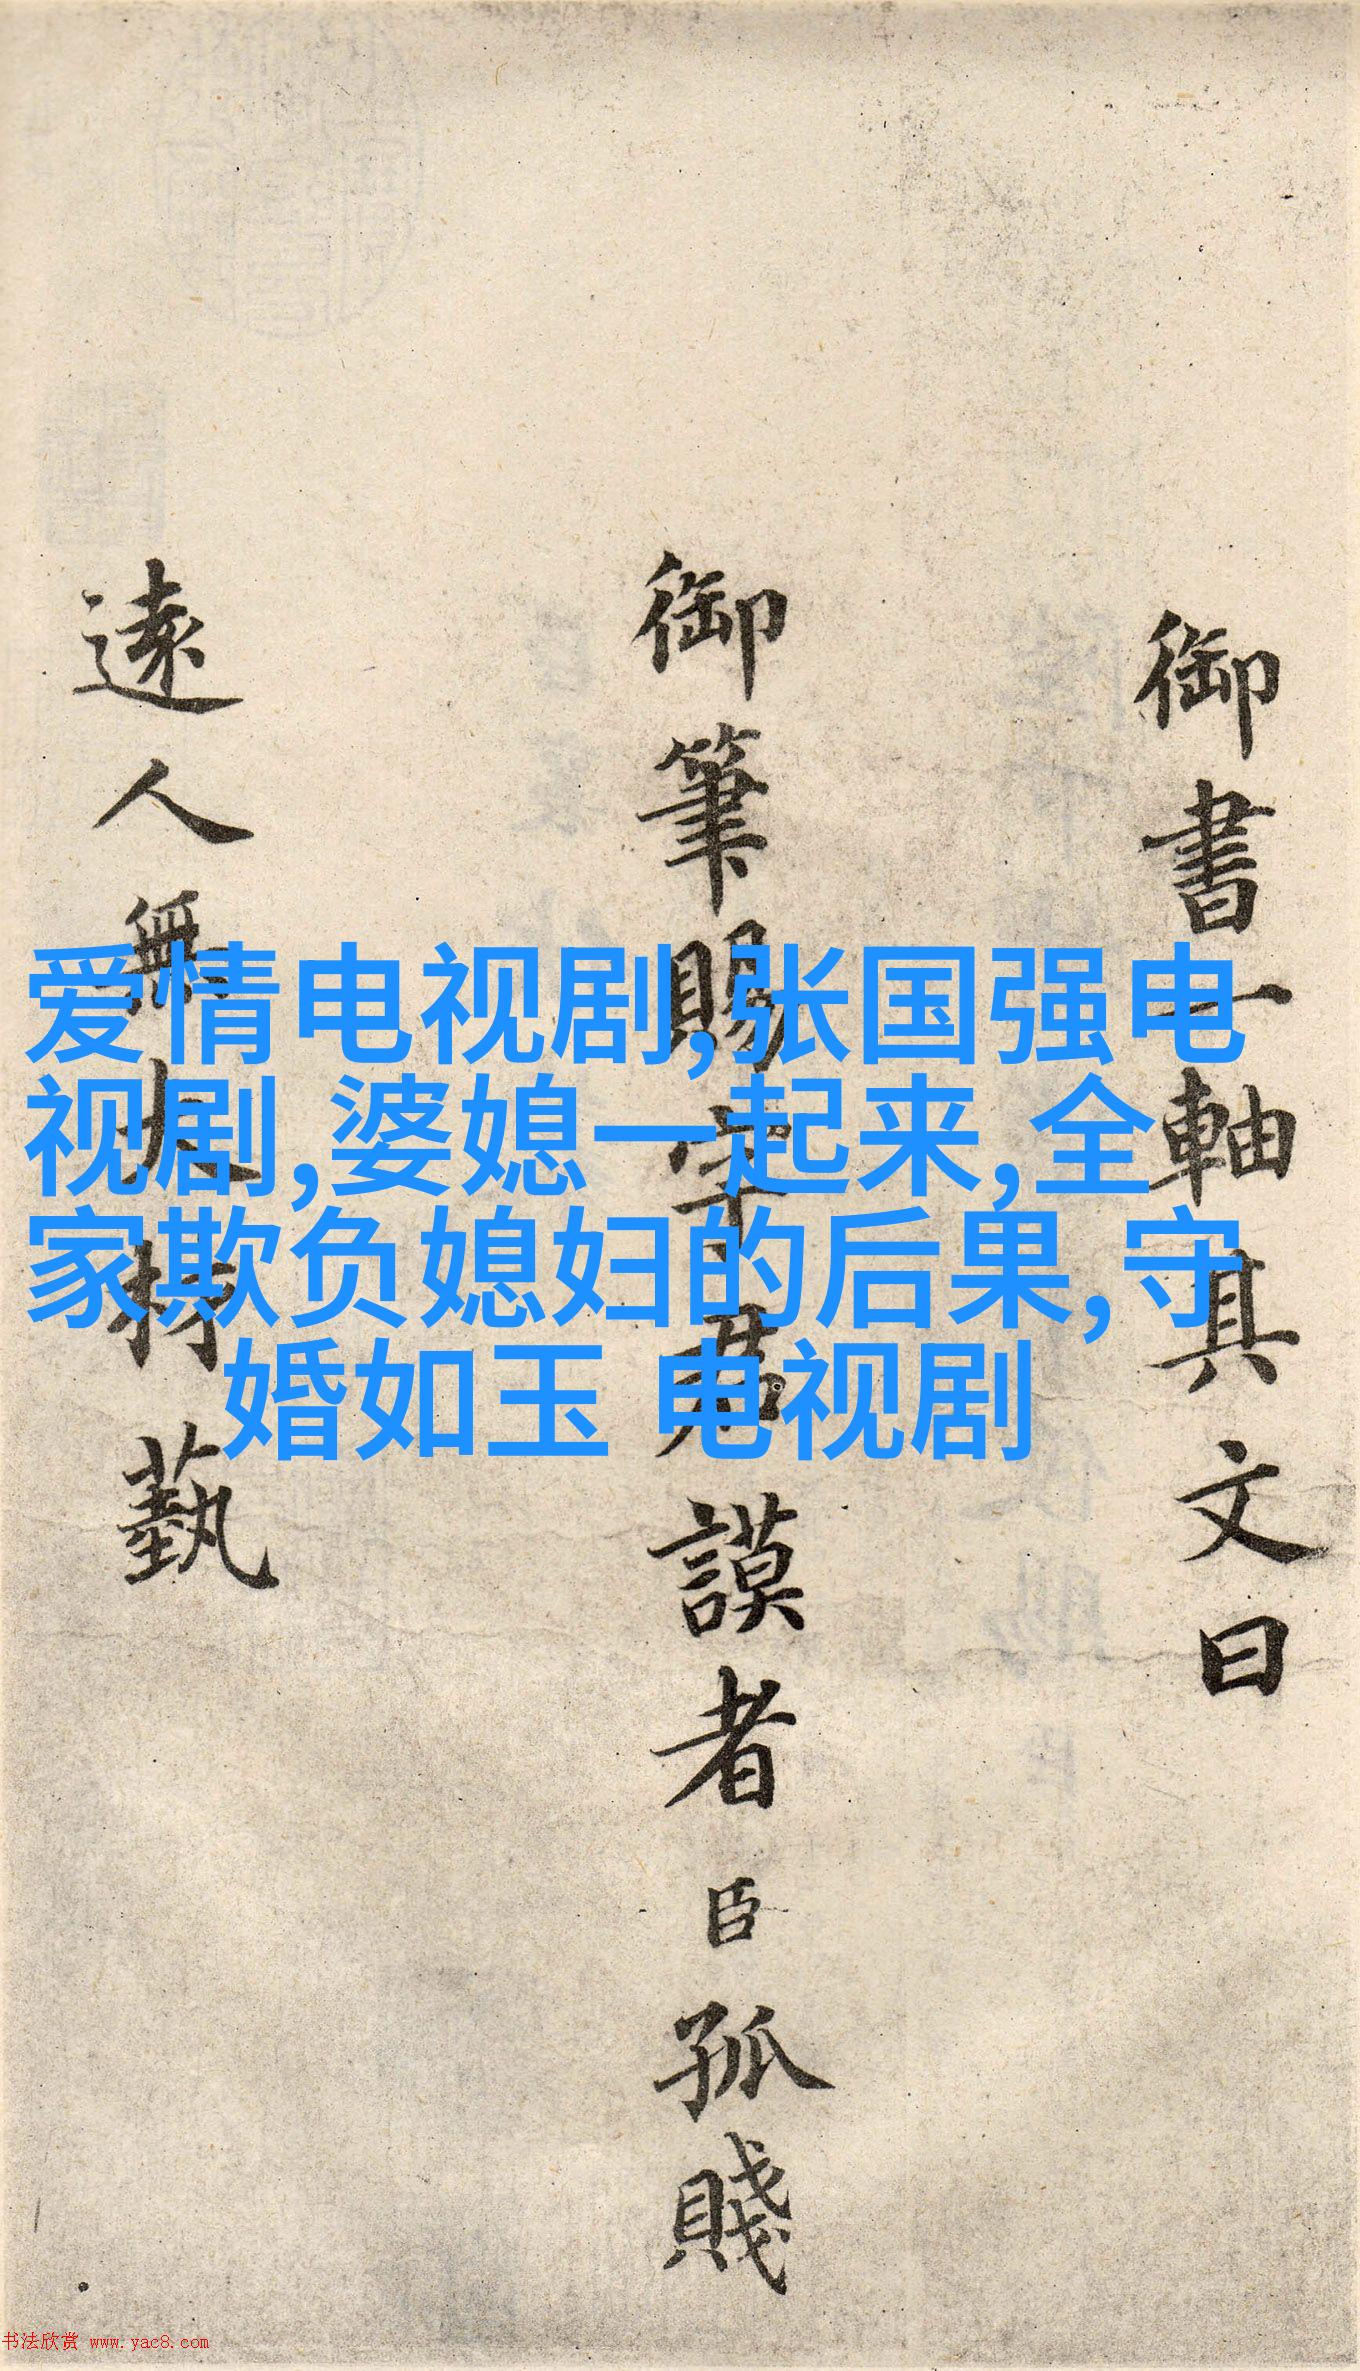 御書一軸其文曰
御筆賜字君謨者臣孤賤
遠人無大材藝
爱情电视剧,张国强电
视剧,婆媳一起来,全
家欺负媳妇的后果,守
婚如玉 电视剧
书法欣赏 www.yac8.com